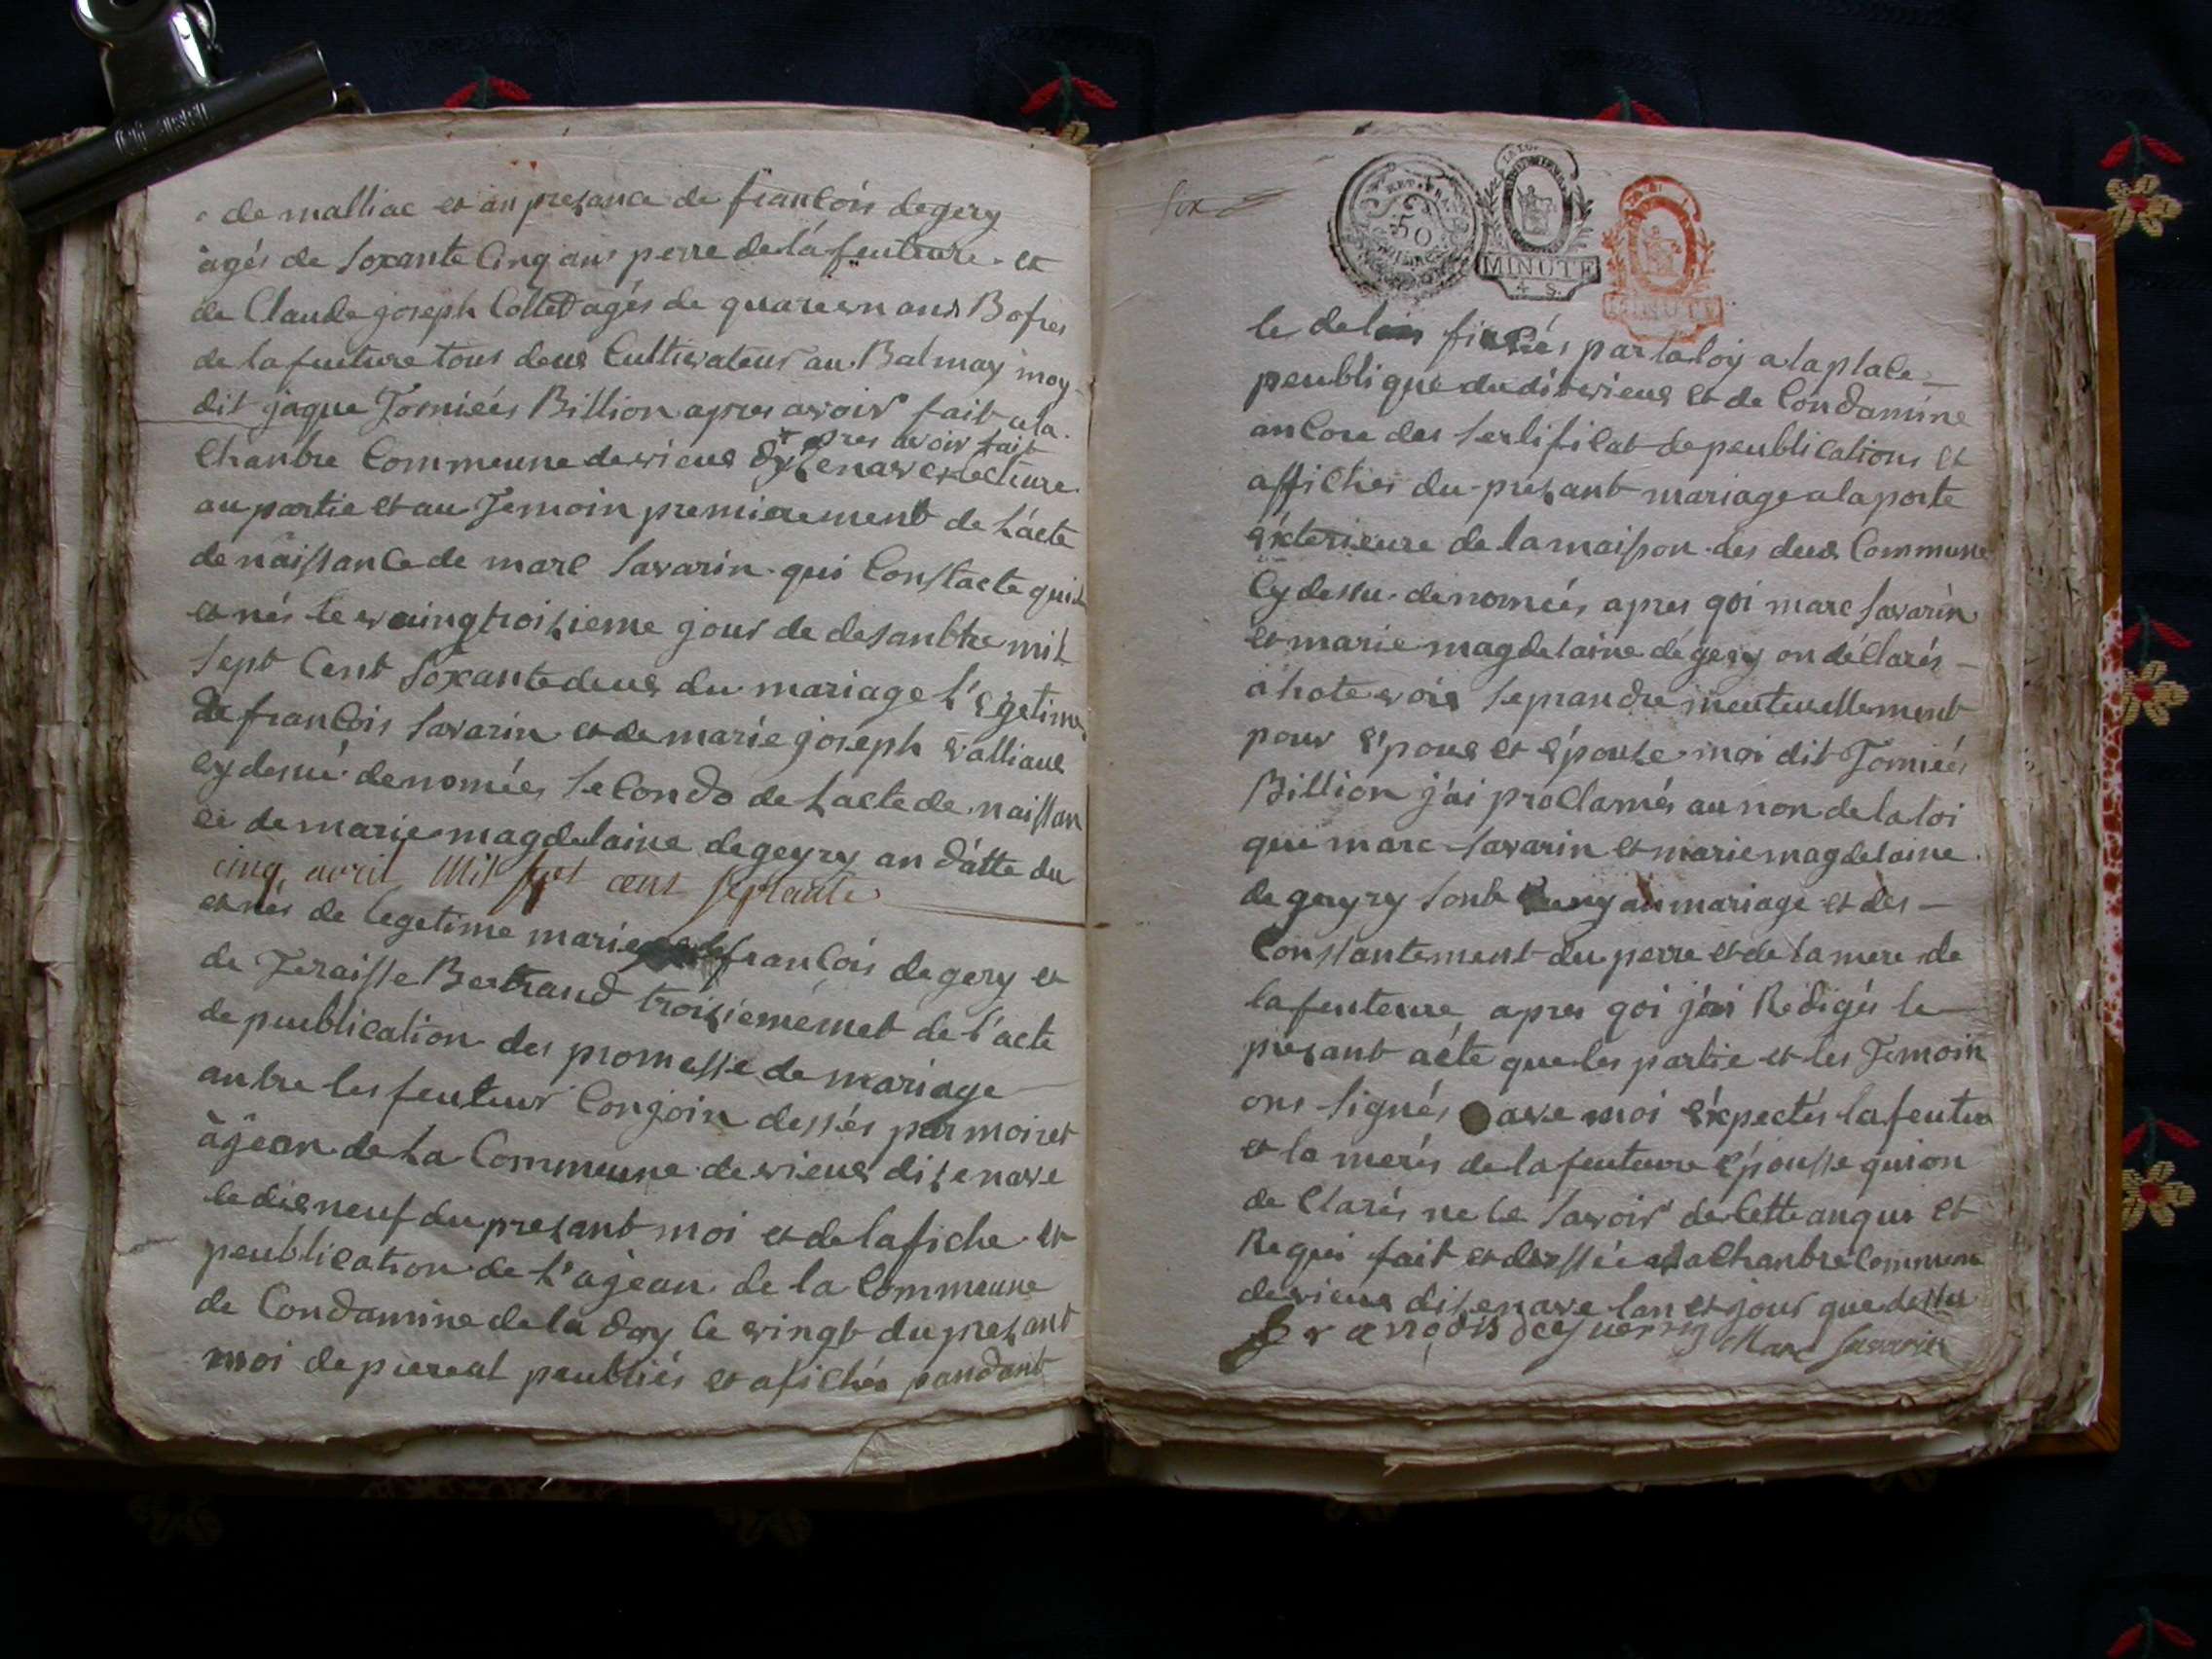 de malliac et an prezance de francois degery
àgés de soxante Cinq ans perre de la feuteure. et
de Claude joseph Collet agés de quare un ans Bofres
de la feuture tous deus Cultivateur au Balmay moy
dit jaque Tomiés Billion apres avoir fait ala
apres avoir fait
Chanbre Commeune de vieus dizenave lecteure
au partie et au Temoin premierement de L'acte
de naissance de marc Savarin qui Constacte quil
et nés le vaingtroizieme jour de desanbre mil
sept Cent soxante deus du mariage l'egetime
de francois Savarin et de marie joseph valliaus
cy desus denomées Secondo de Lacte de naissan
ce de marie magdelaine degeyry an datte du
cinq avril Mil sept cent septante
et nés de legetime marie francois degery et
de Teraisse Bertrand troiziemémet de l'acte
de peublication des promesse de mariage
antre les feuteur Conjoin dessés par moi et
àjean de La Commeune de vieus dizenave
le dis neuf du prezant moi et de lafiche et
peublication de L'ajean de la Commeune
de Condamine de la doy le vingt du prezant
moi depiereal peubliés et afichés pandant
six
REP. FRA.
50
LA LOI
MINUTE
4 S.
MINUTE
le delais fixés par la loy a la place
peublique dudit vieus et de Condamine
ancore des Sertificat de peublications et
affiches du prezant mariage a la porte
éxterieure de la maison des deus Commune
Cy dessu denomées apres qoi marc Savarin
et marie magdelaine dégery on déClarés
a hote vois se prandre meuteuellement
pour épous et épouse moi dit Tomiés
Billion j'ai proClamés au non de la loi
que marc Savarin et marie magdelaine
de geyry sont uny an mariage et des
Constantement du perre et de la mere de
la feuteure apres qoi j'ai Redigés le
prezant acte que les partie et les Temoin
ons signés ave moi éxpectés la feuteu
et la merés de la feuteure épousse qui on
de Clarés ne le savoir de Cette anqui et
Requi fait et dressée a la Chanbre Commeun
de vieus dizenave lan et jour que dessu
francois degueyry Marc Savarin